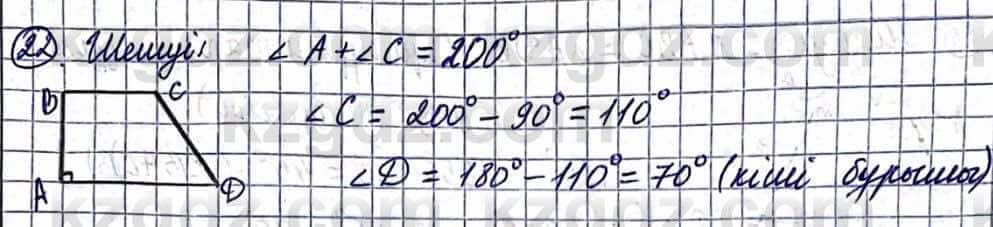 22. Шешуі: ∠A + ∠C = 200°
B C
∠C = 200° − 90° = 110°
A D
∠D = 180° − 110° = 70° (кіші бұрышы)
kzgdz.com